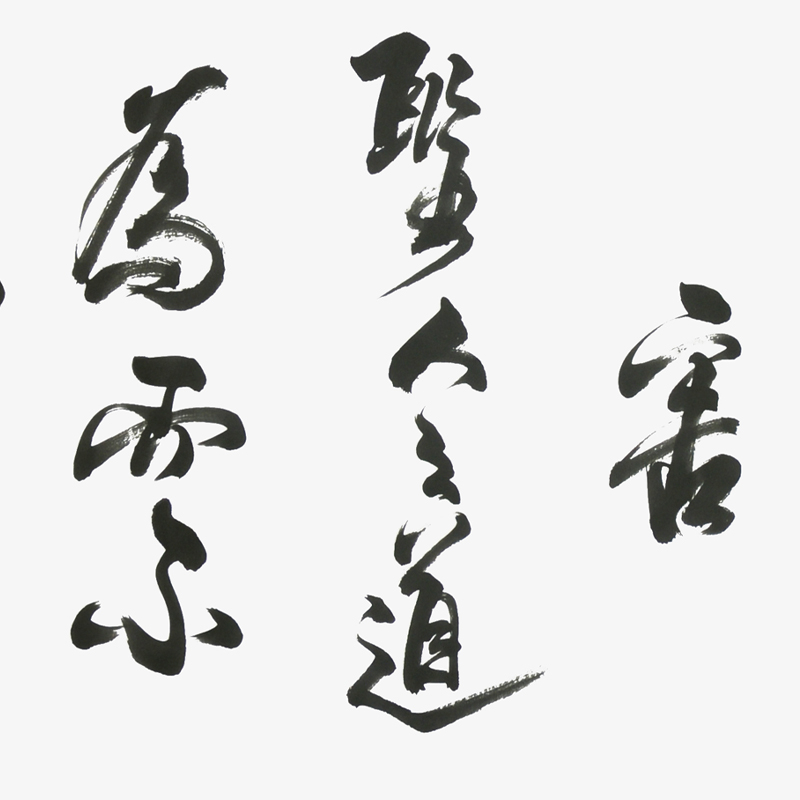 害
聖人之道
為而不